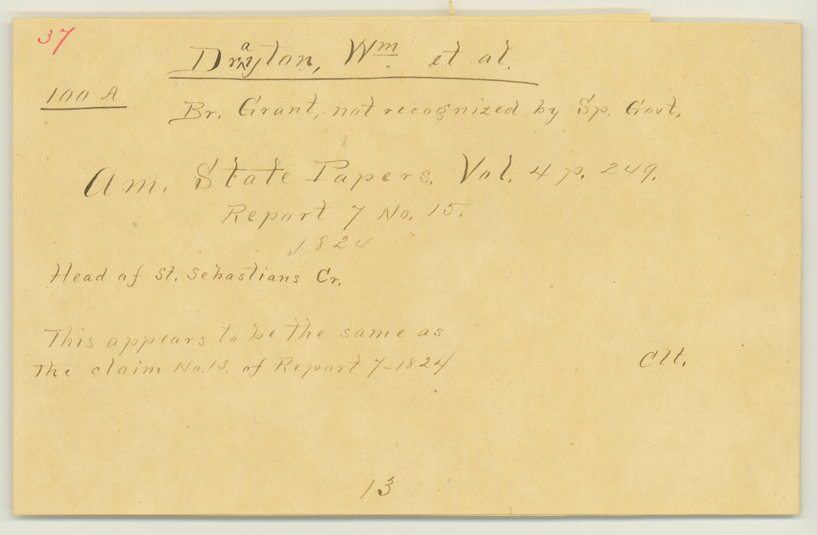 37
Drayton, Wm. et al.
100 A
Br. Grant, not recognized by Sp. Govt.
Am. State Papers. Vol. 4 p. 249.
Report 7 No. 15.
1824
Head of St. Sebastians Cr.
This appears to be the same as
the claim No. 13. of Report 7-1824
13